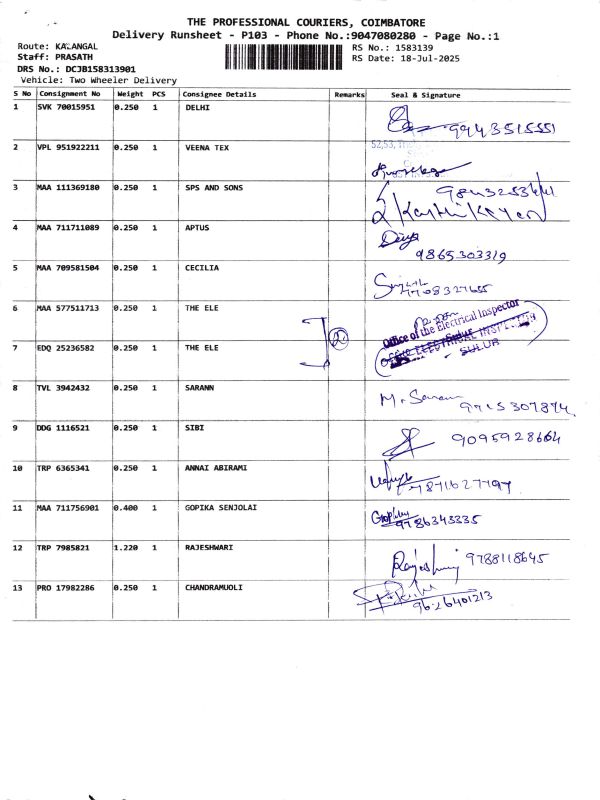 THE PROFESSIONAL COURIERS, COIMBATORE
Delivery Runsheet - P103 - Phone No.:9047080280 - Page No.:1
Route: KALANGAL RS No.: 1583139
Staff: PRASATH RS Date: 18-Jul-2025
DRS No.: DCJB158313901
Vehicle: Two Wheeler Delivery
S No Consignment No Weight PCS Consignee Details Remarks Seal & Signature
1 SVK 70015951 0.250 1 DELHI
9943515551
2 VPL 951922211 0.250 1 VEENA TEX
3 MAA 111369180 0.250 1 SPS AND SONS
Karthikeyan
4 MAA 711711089 0.250 1 APTUS
9865303319
5 MAA 709581504 0.250 1 CECILIA
6 MAA 577511713 0.250 1 THE ELE
Office of the Electrical Inspector
7 EDQ 25236582 0.250 1 THE ELE
SULUR
8 TVL 3942432 0.250 1 SARANN M. Sarann
9715307874
9 DDG 1116521 0.250 1 SIBI
9095928664
10 TRP 6365341 0.250 1 ANNAI ABIRAMI
11 MAA 711756901 0.400 1 GOPIKA SENJOLAI
9786343335
12 TRP 7985821 1.220 1 RAJESHWARI
9788118645
13 PRO 17982286 0.250 1 CHANDRAMUOLI
9626401213